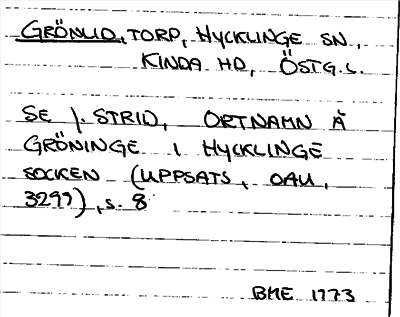 GRÖNLID, TORP, HYCKLINGE SN.,
KINDA HD, ÖSTG.L.
SE J. STRID, ORTNAMN Å
GRÖNINGE I HYCKLINGE
SOCKEN (UPPSATS, OAU,
3299), s. 8
BME 1773